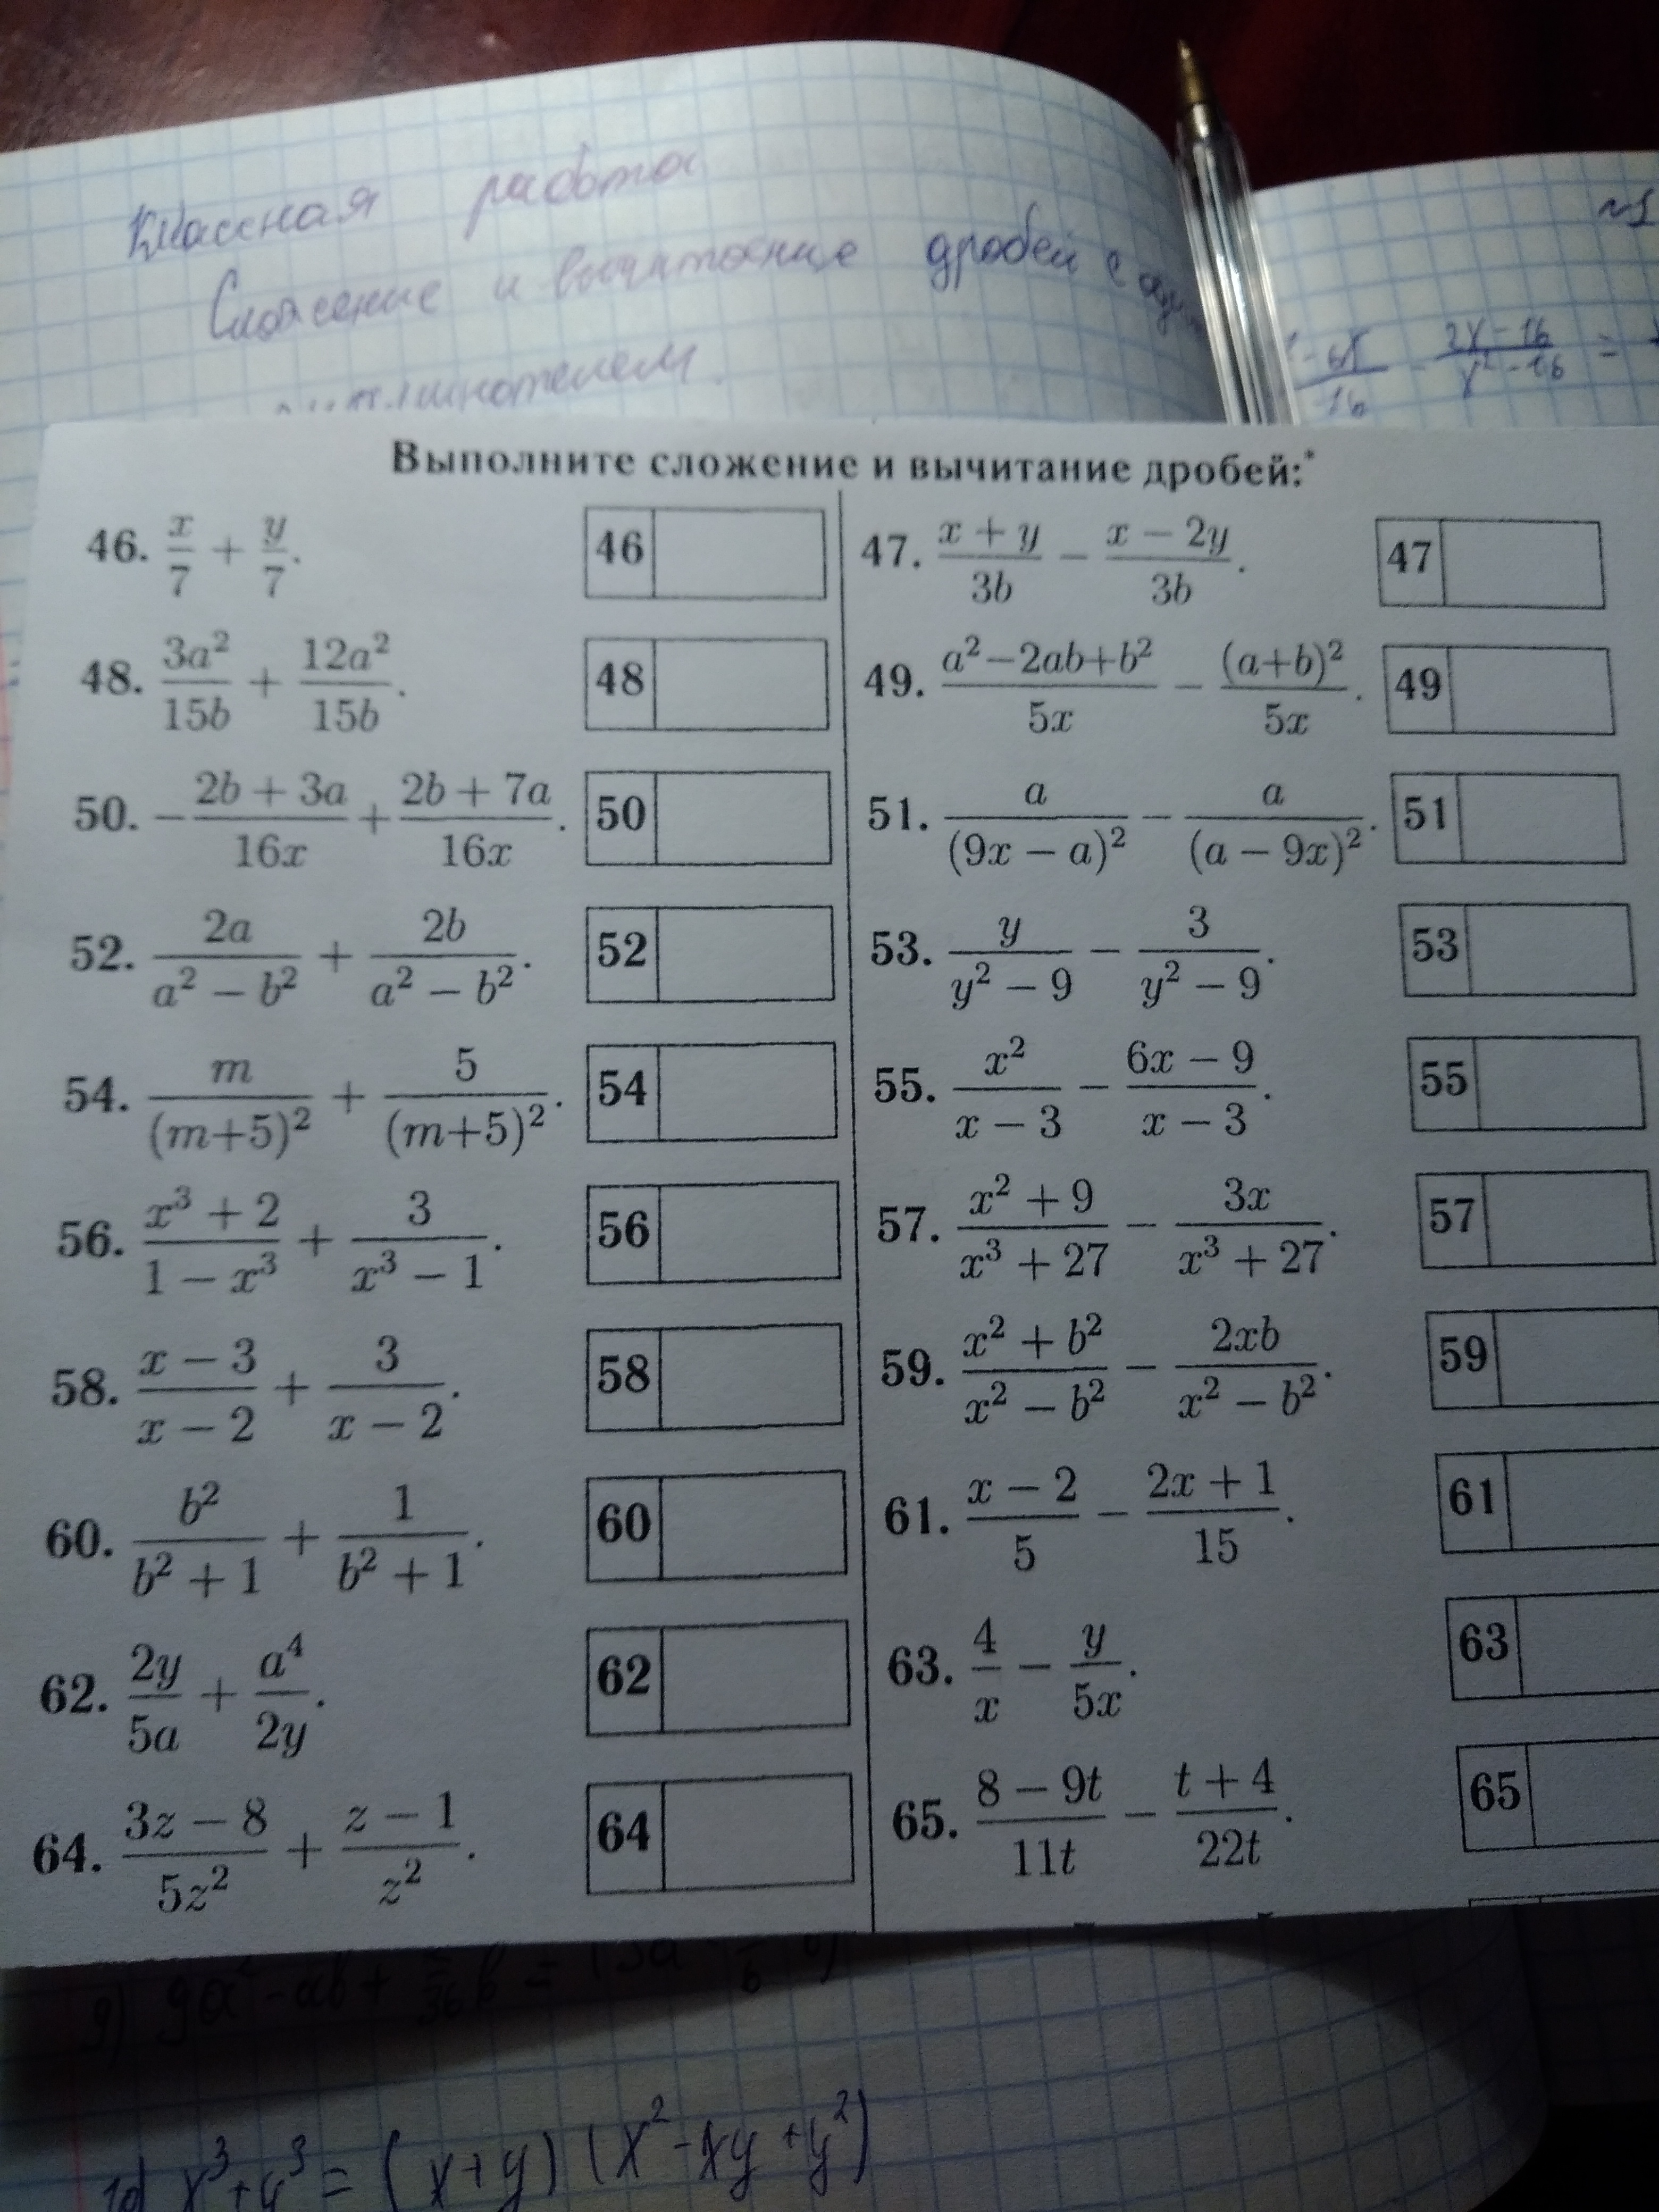 Классная работа
Сложение и вычитание дробей с
№1
2x-16 / x²-16 =
Выполните сложение и вычитание дробей:*
46. x/7 + y/7. 46
47. (x + y)/3b − (x − 2y)/3b. 47
48. 3a²/15b + 12a²/15b. 48
49. (a²−2ab+b²)/5x − (a+b)²/5x. 49
50. −(2b + 3a)/16x + (2b + 7a)/16x. 50
51. a/(9x − a)² − a/(a − 9x)². 51
52. 2a/(a² − b²) + 2b/(a² − b²). 52
53. y/(y² − 9) − 3/(y² − 9). 53
54. m/(m+5)² + 5/(m+5)². 54
55. x²/(x − 3) − (6x − 9)/(x − 3). 55
56. (x³ + 2)/(1 − x³) + 3/(x³ − 1). 56
57. (x² + 9)/(x³ + 27) − 3x/(x³ + 27). 57
58. (x − 3)/(x − 2) + 3/(x − 2). 58
59. (x² + b²)/(x² − b²) − 2xb/(x² − b²). 59
60. b²/(b² + 1) + 1/(b² + 1). 60
61. (x − 2)/5 − (2x + 1)/15. 61
62. 2y/5a + a⁴/2y. 62
63. 4/x − y/5x. 63
64. (3z − 8)/5z² + (z − 1)/z². 64
65. (8 − 9t)/11t − (t + 4)/22t. 65
9) 9a² - ab +
10) x³+y³ = (x+y)(x²-xy+y²)